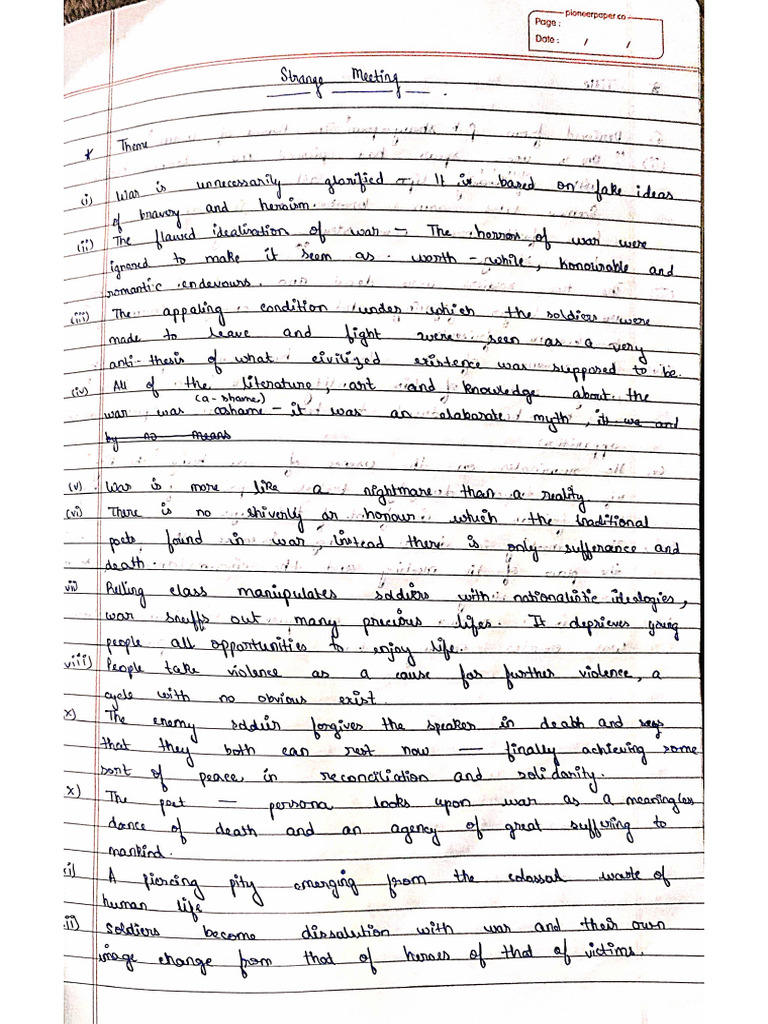 pioneerpaper.co
Page :
Date : / /
Strange Meeting
* Theme
(i) War is unnecessarily glorified -, It is based on fake ideas
of bravery and heroism.
(ii) The flawed idealisation of war - The horrors of war were
ignored to make it seem as worth-while, honourable and
romantic endevours.
(iii) The appaling condition under which the soldiers were
made to leave and fight were seen as a very
anti-thesis of what civilized existence was supposed to be.
(iv) All of the literature, art and knowledge about the
(a-shame)
war was ashame - it was an elaborate myth, it we and
by no means
(v) War is more like a nightmare than a reality
(vi) There is no shiverly or honour which the traditional
poets found in war, instead there is only sufferance and
death.
vii) Rulling class manipulates soldiers with nationalistic ideologies,
war snuffs out many precious lifes. It deprieves young
people all opportunities to enjoy life.
viii) People take violence as a cause for further violence, a
cycle with no obvious exist.
x) The enemy soldier forgives the speaker in death and says
that they both can rest now — finally achieving some
sort of peace in reconciliation and solidarity.
x) The poet - persona looks upon war as a meaningless
dance of death and an agency of great suffering to
mankind.
i) A piercing pity emerging from the colossal waste of
human life
ii) Soldiers become dissalution with war and their own
image change from that of heroes of that of victims.